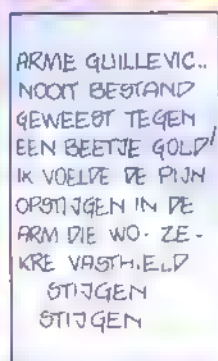 ARME GUILLEVIC..
NOOIT BESTAND
GEWEEST TEGEN
EEN BEETJE GOLD!
IK VOELDE DE PIJN
OPSTIJGEN IN DE
ARM DIE WO. ZE-
KRE VASTH.ELD
STIJGEN
STIJGEN